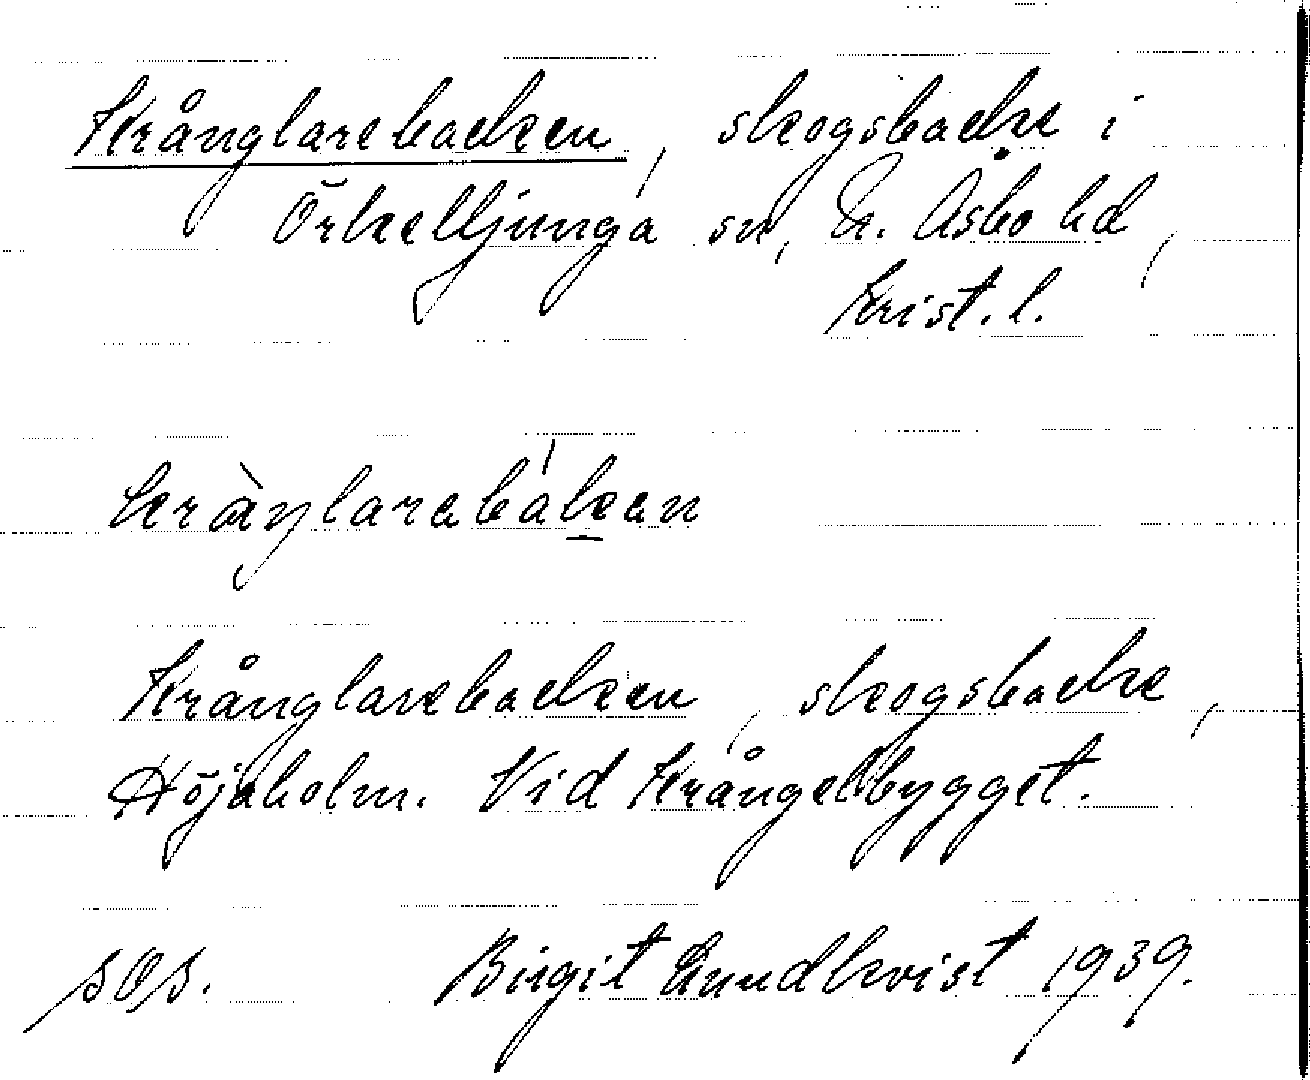 Krånglarebacken, skogsbacke i
Örkelljunga sn, N. Åsbo hd,
Krist. l.
kràŋlarebáken
Krånglarebacken, skogsbacke,
Höjaholm. Vid Krångelbygget.
SOS. Birgit Lundkvist 1939.